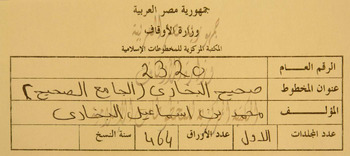 جمهورية مصر العربية
وزارة الأوقاف
المكتبة المركزية للمخطوطات الإسلامية
الرقم العـــام 2320
عنوان المخطوط صحيح البخارى (الجامع الصحيح)
المؤلـــف محمد بن اسماعيل البخارى
عدد المجلدات الاول عدد الأوراق 464 سنة النسخ